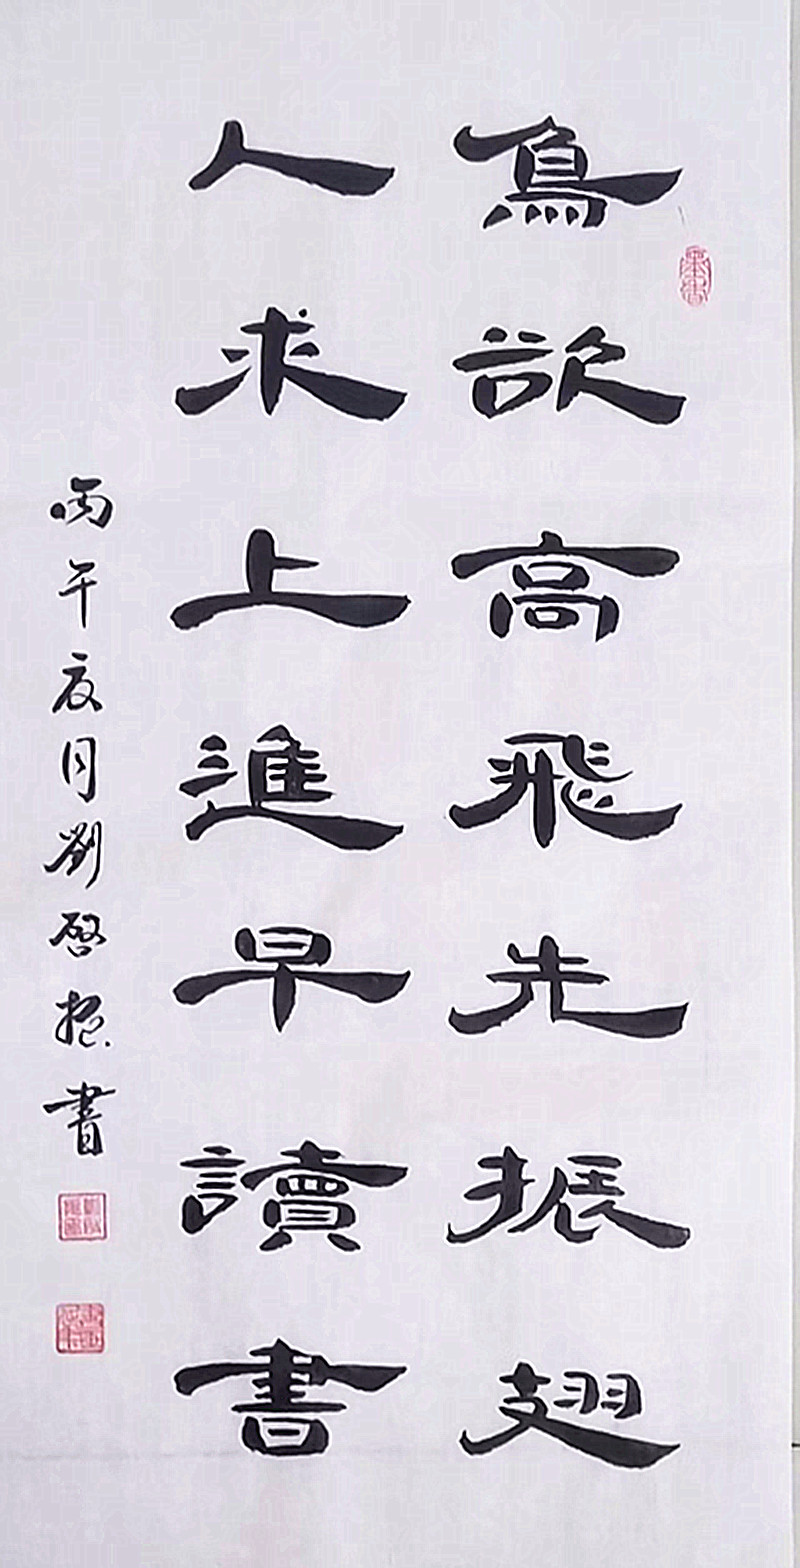 鳥欲高飛先振翅
人求上進早讀書
丙午夏月劉啓振書